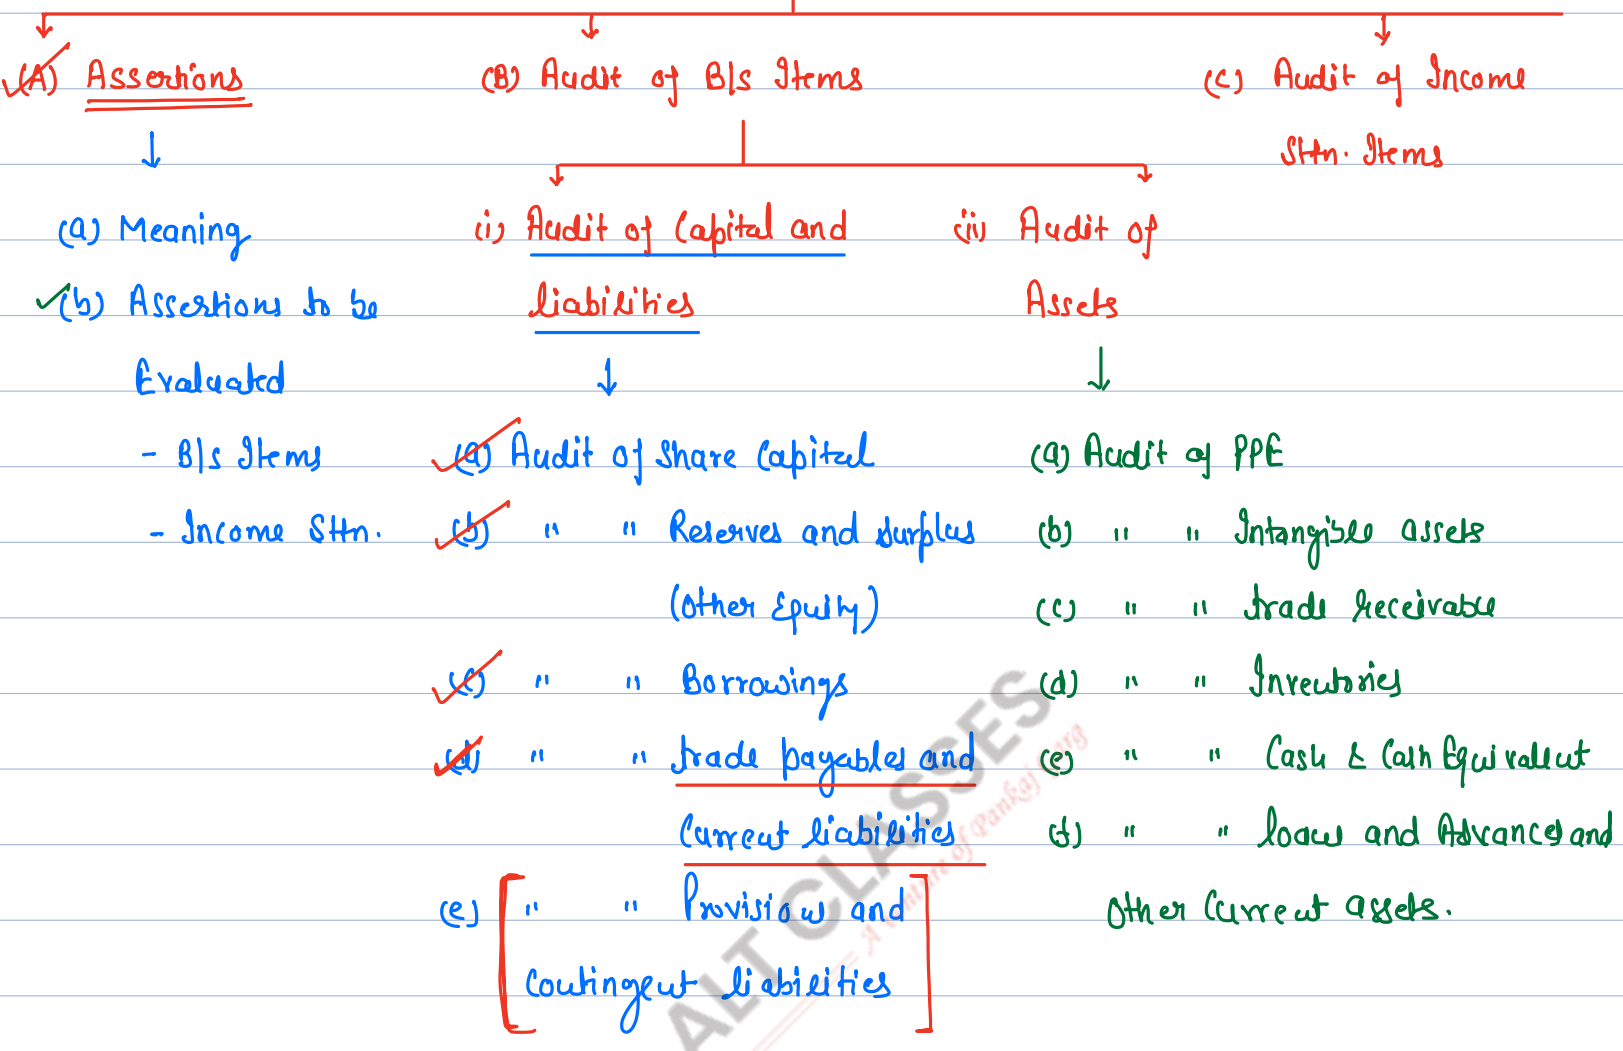 (A) Assertions
(B) Audit of B/s Items
(C) Audit of Income
Sttn. Items
(a) Meaning
(b) Assertions to be
Evaluated
- B/s Items
- Income Sttn.
(i) Audit of Capital and
liabilities
(a) Audit of Share Capital
(b) " " Reserves and Surplus
(Other Equity)
(c) " " Borrowings
(d) " " trade payables and
Current liabilities
(e) " " Provisions and
Contingent liabilities
(ii) Audit of
Assets
(a) Audit of PPE
(b) " " Intangible assets
(c) " " trade receivable
(d) " " Inventories
(e) " " Cash & Cash Equivalent
(f) " " loans and Advances and
Other Current assets.
ALT CLASSES
A Venture of Pankaj